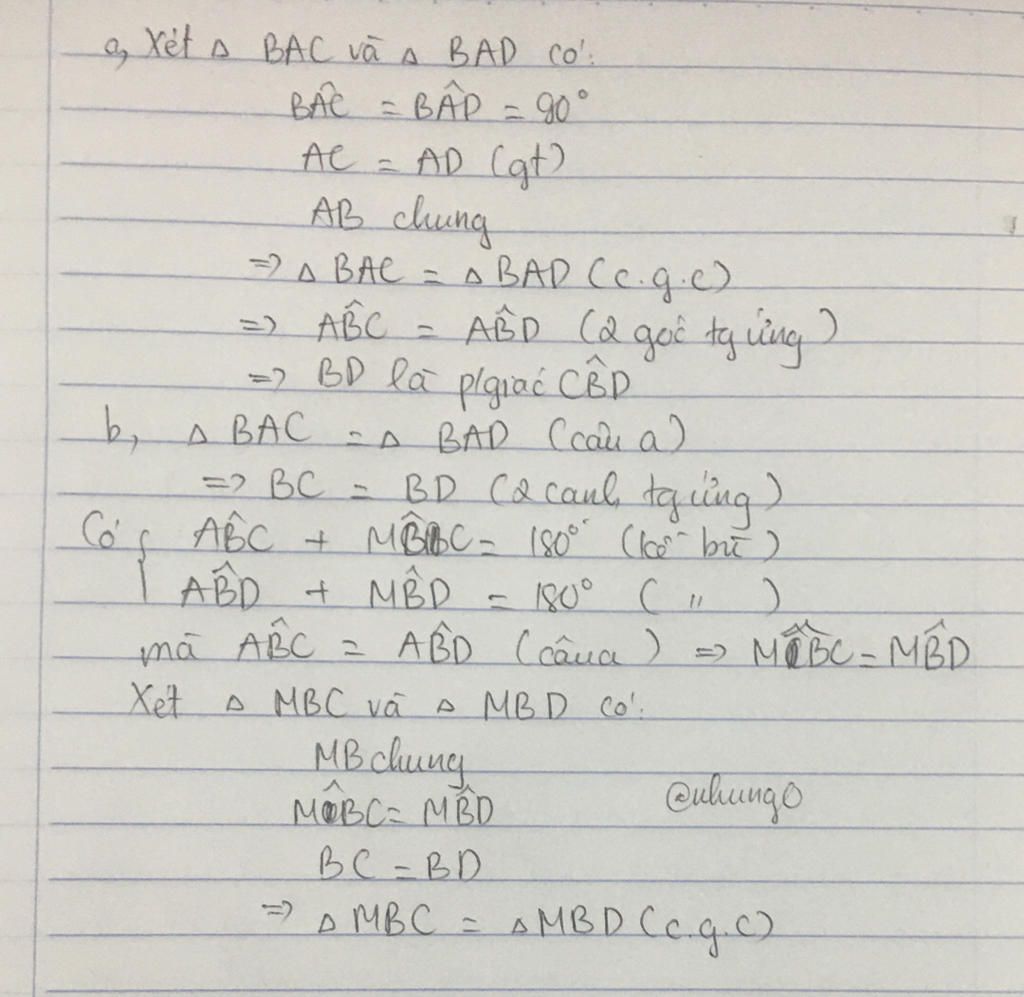 a, Xét Δ BAC và Δ BAD có:
BÂC = BÂD = 90°
AC = AD (gt)
AB chung
=> Δ BAC = Δ BAD (c.g.c)
=> AB̂C = AB̂D (2 góc tg ứng)
=> BD là p/giác CB̂D
b, Δ BAC = Δ BAD (câu a)
=> BC = BD (2 cạnh tg ứng)
Có { AB̂C + MB̂C = 180° (kề bù)
AB̂D + MB̂D = 180° ( " )
mà AB̂C = AB̂D (câu a) => MB̂C = MB̂D
Xét Δ MBC và Δ MBD có:
MB chung
MB̂C = MB̂D
@nhung0
BC = BD
=> Δ MBC = Δ MBD (c.g.c)